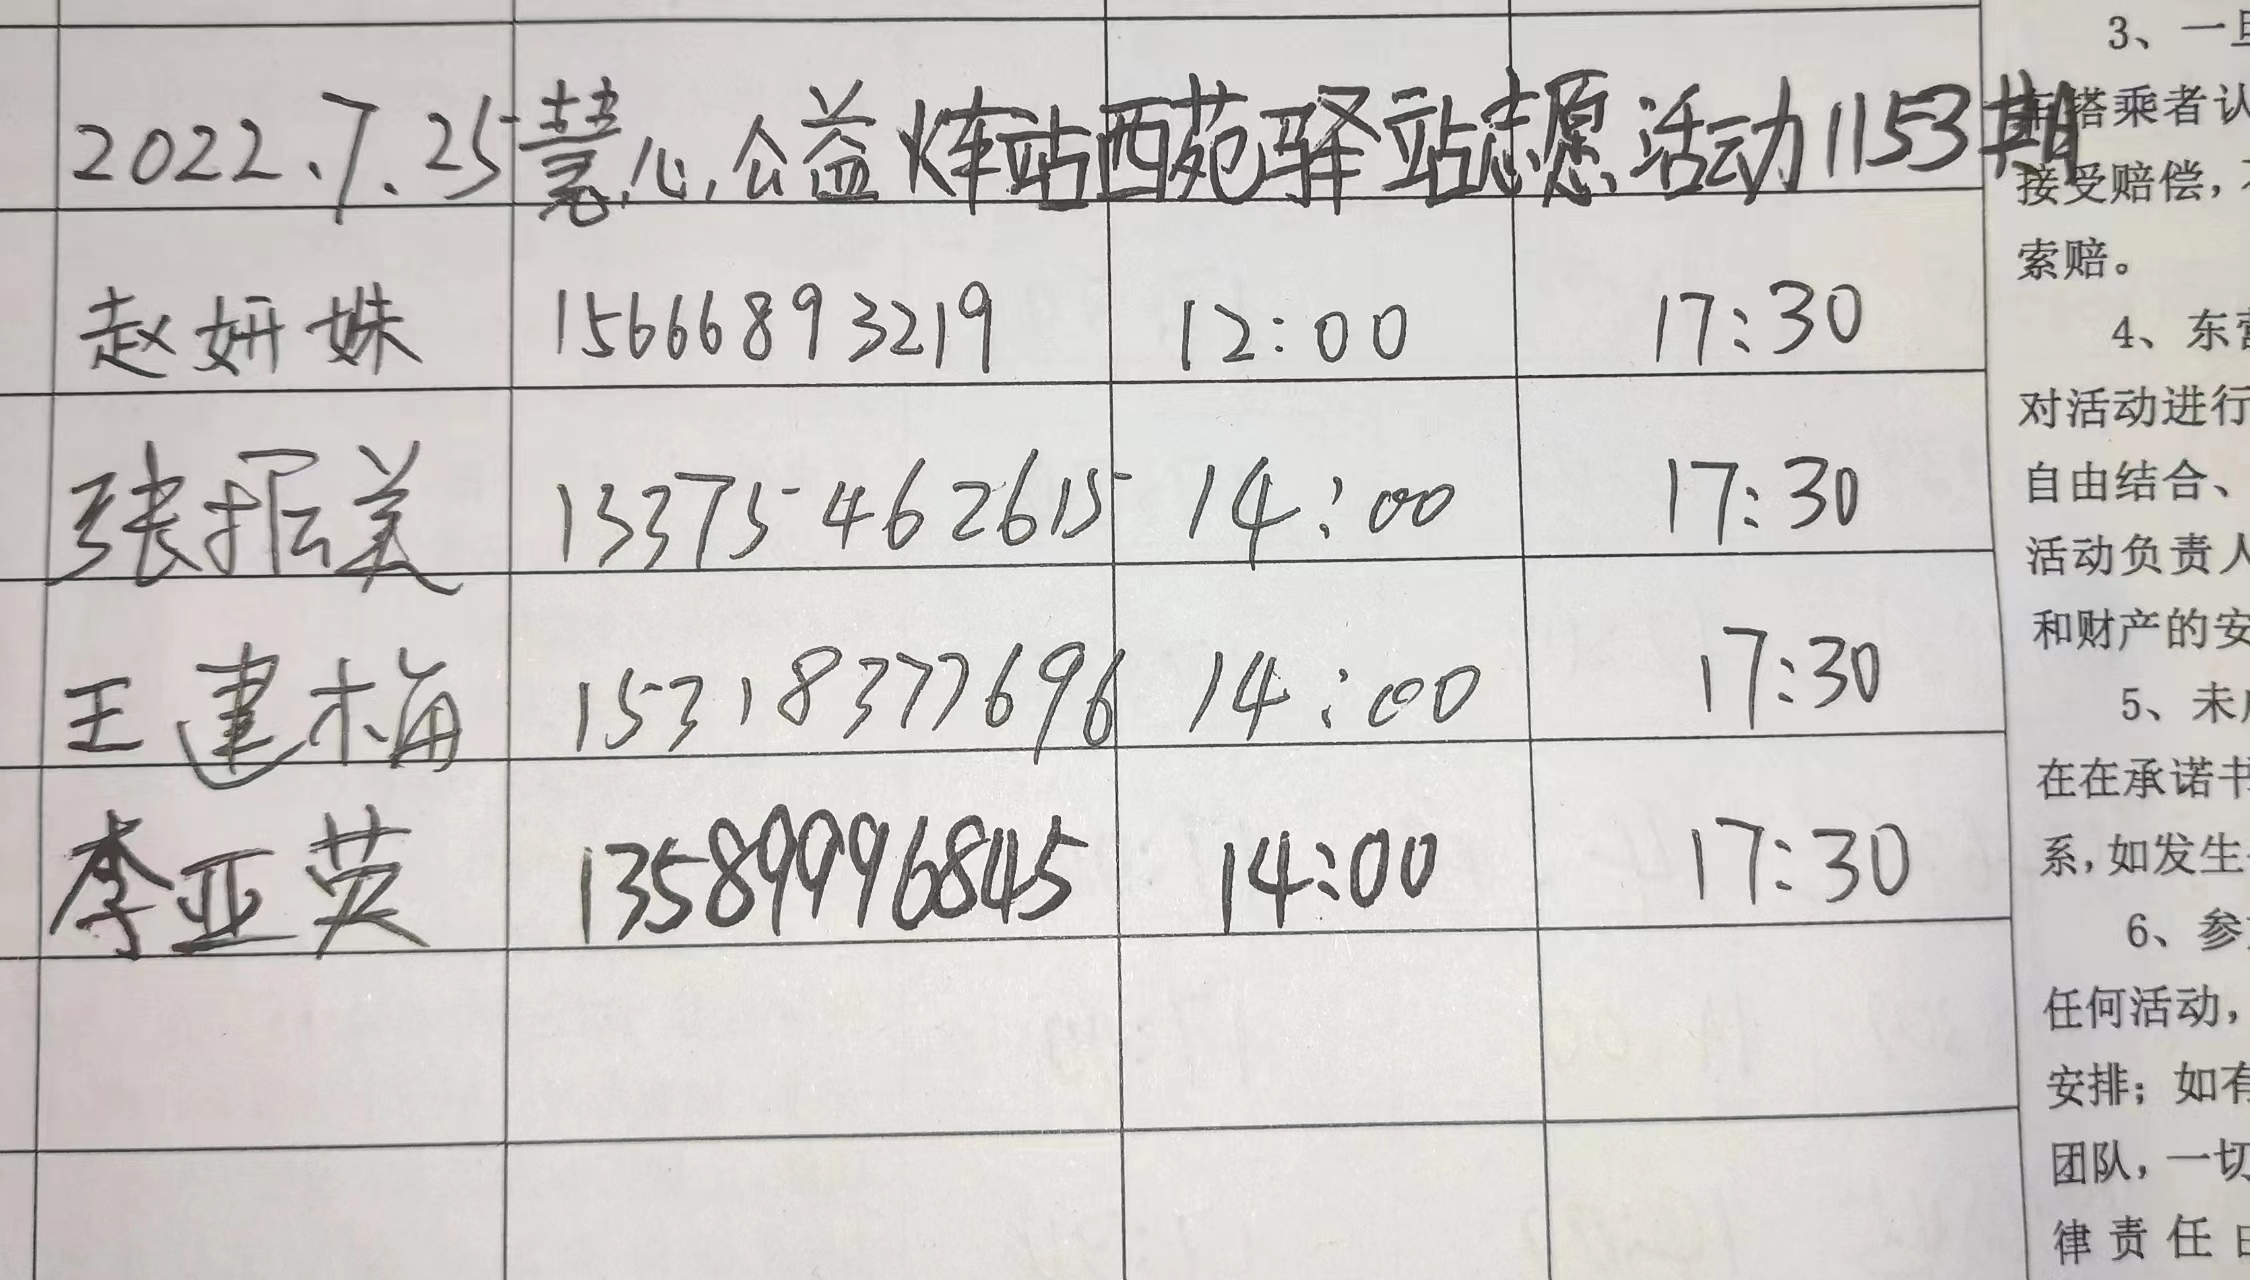 2022.7.25 慧心公益烽站西苑驿站志愿活动1153期
赵妍姝 15666893219 12:00 17:30
张振美 13375462615 14:00 17:30
王建梅 15318377696 14:00 17:30
李亚英 13589996845 14:00 17:30
3、一旦
搭乘者认
接受赔偿,
索赔。
4、东营
对活动进行
自由结合、
活动负责人
和财产的安
5、未
在在承诺书
系,如发生
6、参
任何活动,
安排;如有
团队,一切
律责任由